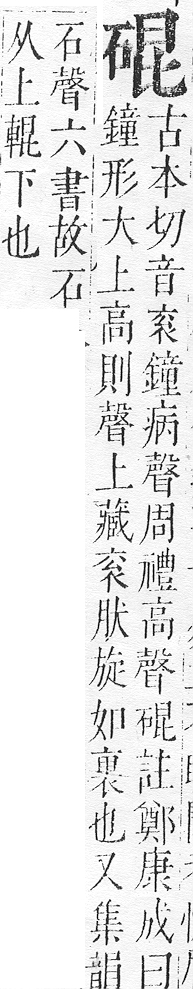 硍
古本切音衮鐘病聲周禮高聲硍註鄭康成曰
鐘形大上高則聲上藏衮肰旋如裏也又集韻
石聲六書故石
从上輥下也